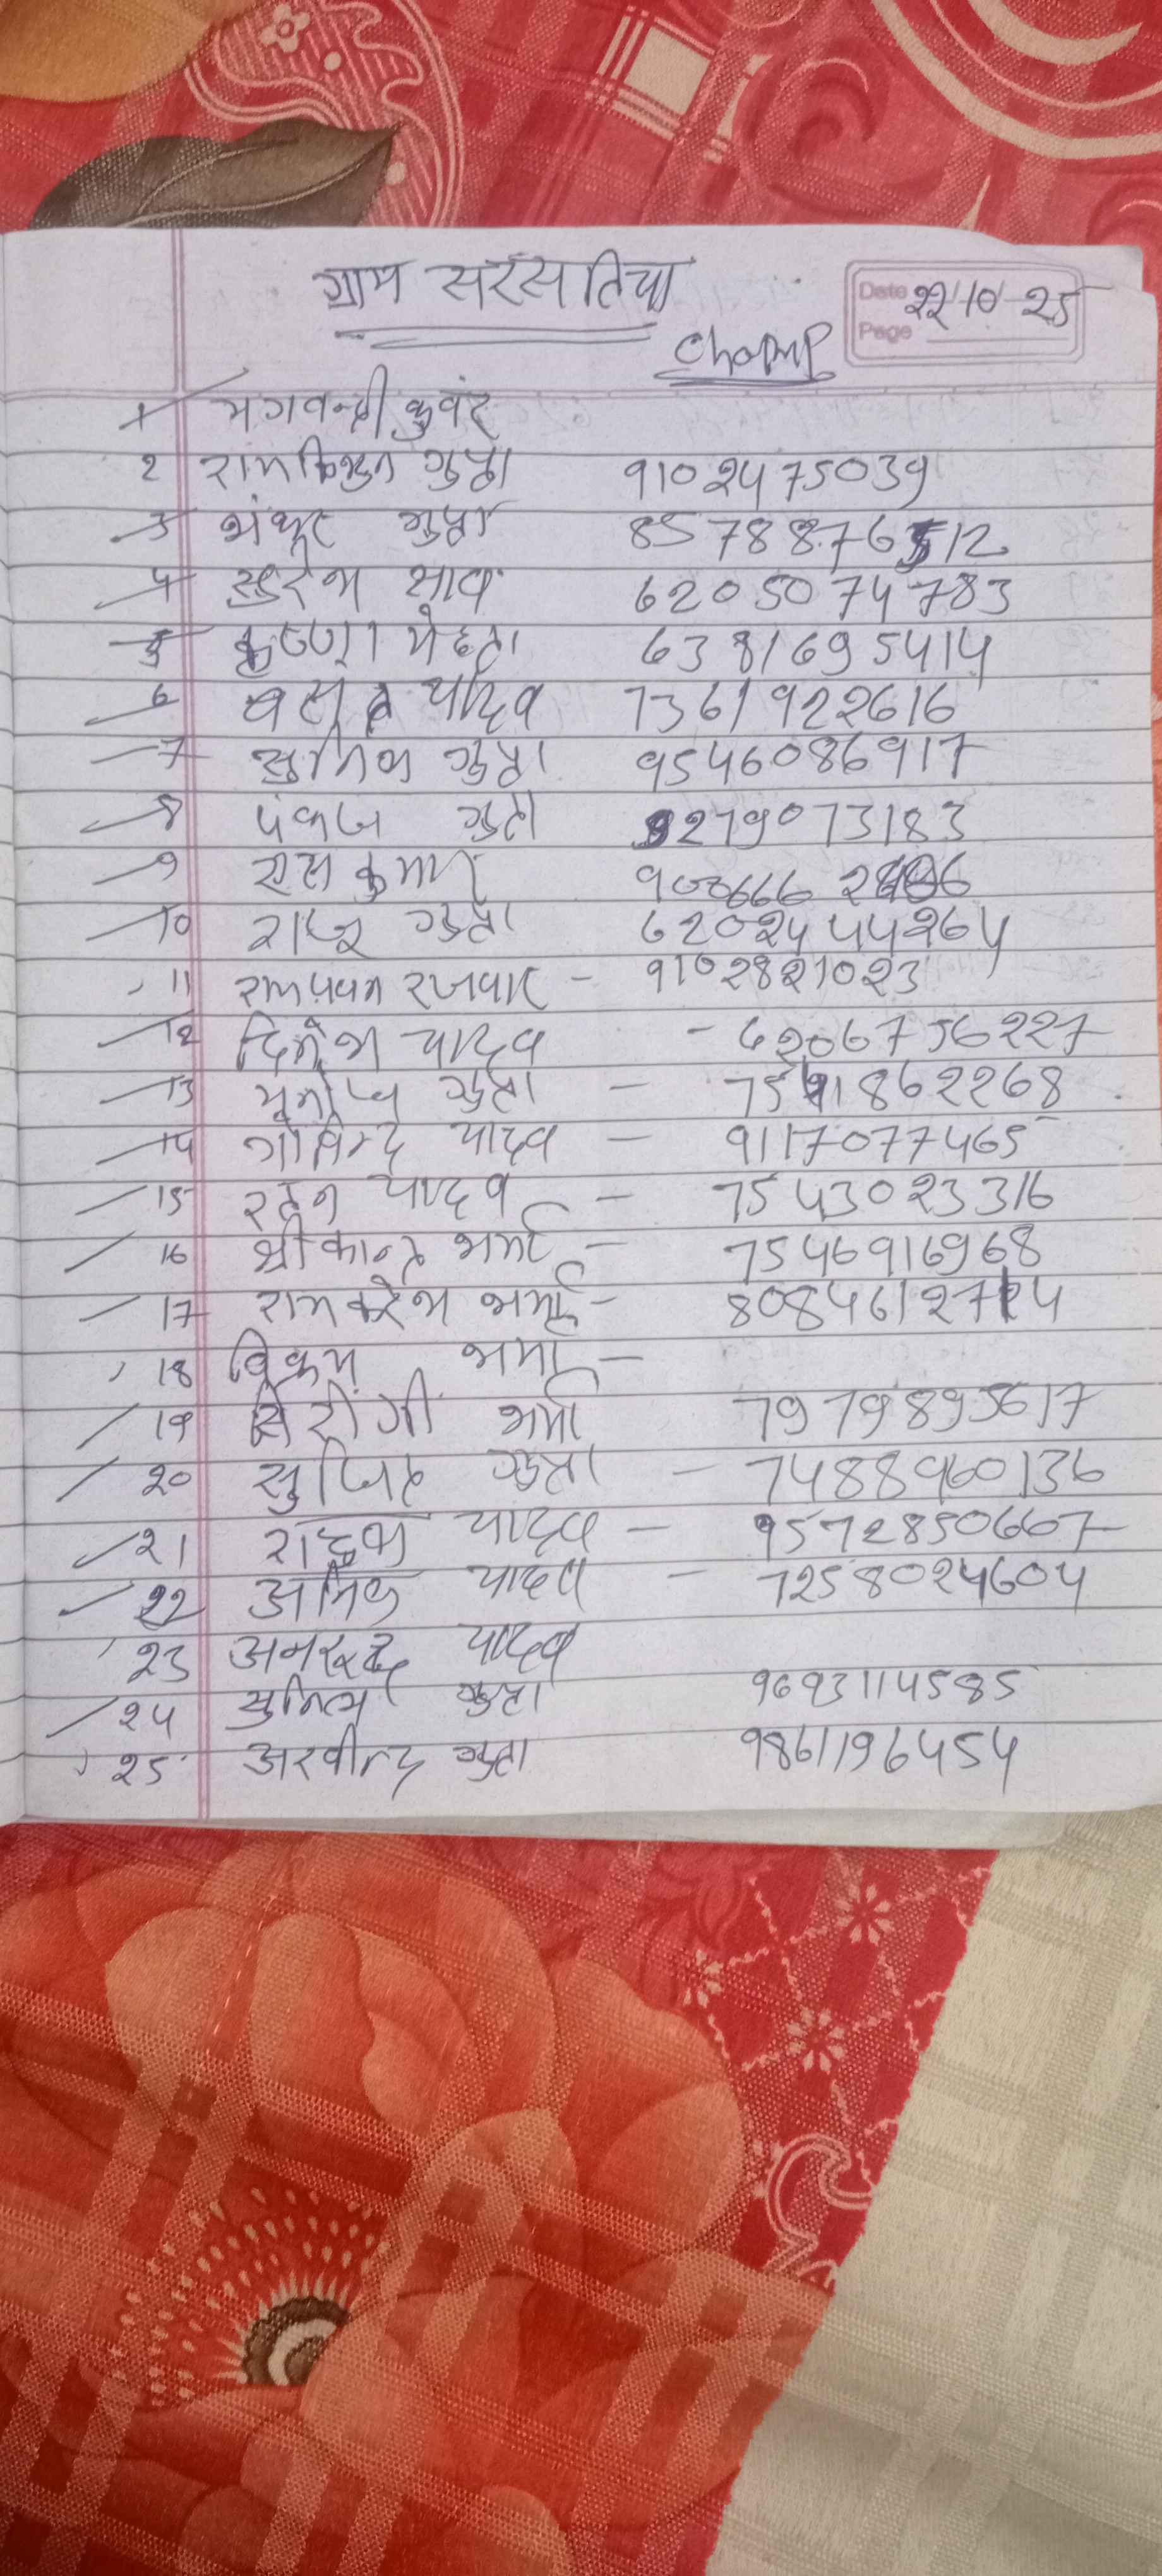 ग्राम सरसतिया
Date 22/10-25
Page
1 भगवन्ती कुवंर
2 रामकिशुन गुप्ता 9102475039
3 शंकर गुप्ता 8578876512
4 सुरेश साव 6205074783
5 कृष्णा मेहता 6381695414
6 यादव 7361922616
7 सुमित गुप्ता 9546086917
8 पंकज गुप्ता 9279073183
9 कुमार
10 राजू गुप्ता 6202444264
11 रामपवन रजवार - 9102821023
12 दिनेश यादव - 6206756227
13 मनोज गुप्ता - 7541862268
14 गोविन्द यादव - 9117077465
15 रतन यादव - 7543023316
16 श्रीकान्त शर्मा - 7546916968
17 रामनरेश शर्मा - 8084612724
18 विक्रम शर्मा -
19 सिरोगी शर्मा 7979895617
20 सुजित गुप्ता - 7488960136
21 यादव - 9572850667
22 अमित यादव - 7258024604
23 अनरुद्ध यादव
24 गुप्ता 9693114585
25 अरवीन्द गुप्ता 9861196454